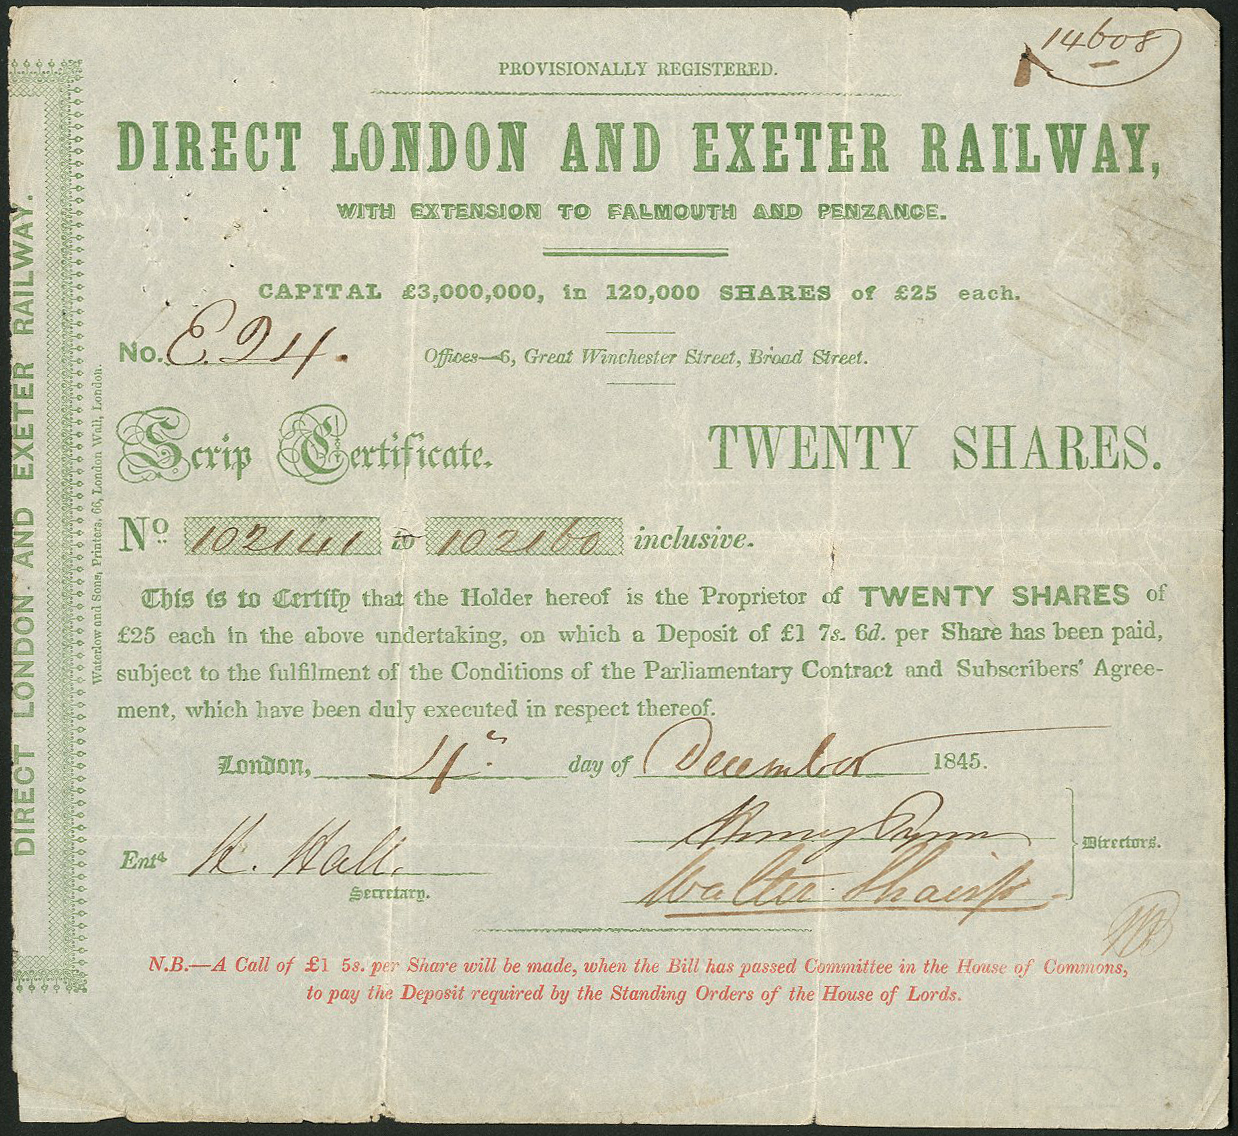 14608
PROVISIONALLY REGISTERED.
DIRECT LONDON AND EXETER RAILWAY,
WITH EXTENSION TO FALMOUTH AND PENZANCE.
CAPITAL £3,000,000, in 120,000 SHARES of £25 each.
No. E. 24.
Offices—6, Great Winchester Street, Broad Street.
Scrip Certificate. TWENTY SHARES.
No. 102141 to 102160 inclusive.
This is to Certify that the Holder hereof is the Proprietor of TWENTY SHARES of
£25 each in the above undertaking, on which a Deposit of £1 7s. 6d. per Share has been paid,
subject to the fulfilment of the Conditions of the Parliamentary Contract and Subscribers' Agree-
ment, which have been duly executed in respect thereof.
London, 4th day of December 1845.
Henry
Directors.
Entd. H. Hall.
Secretary.
Walter Shairp
N.B.—A Call of £1 5s. per Share will be made, when the Bill has passed Committee in the House of Commons,
to pay the Deposit required by the Standing Orders of the House of Lords.
DIRECT LONDON AND EXETER RAILWAY.
Waterlow and Sons, Printers, 66, London Wall, London.